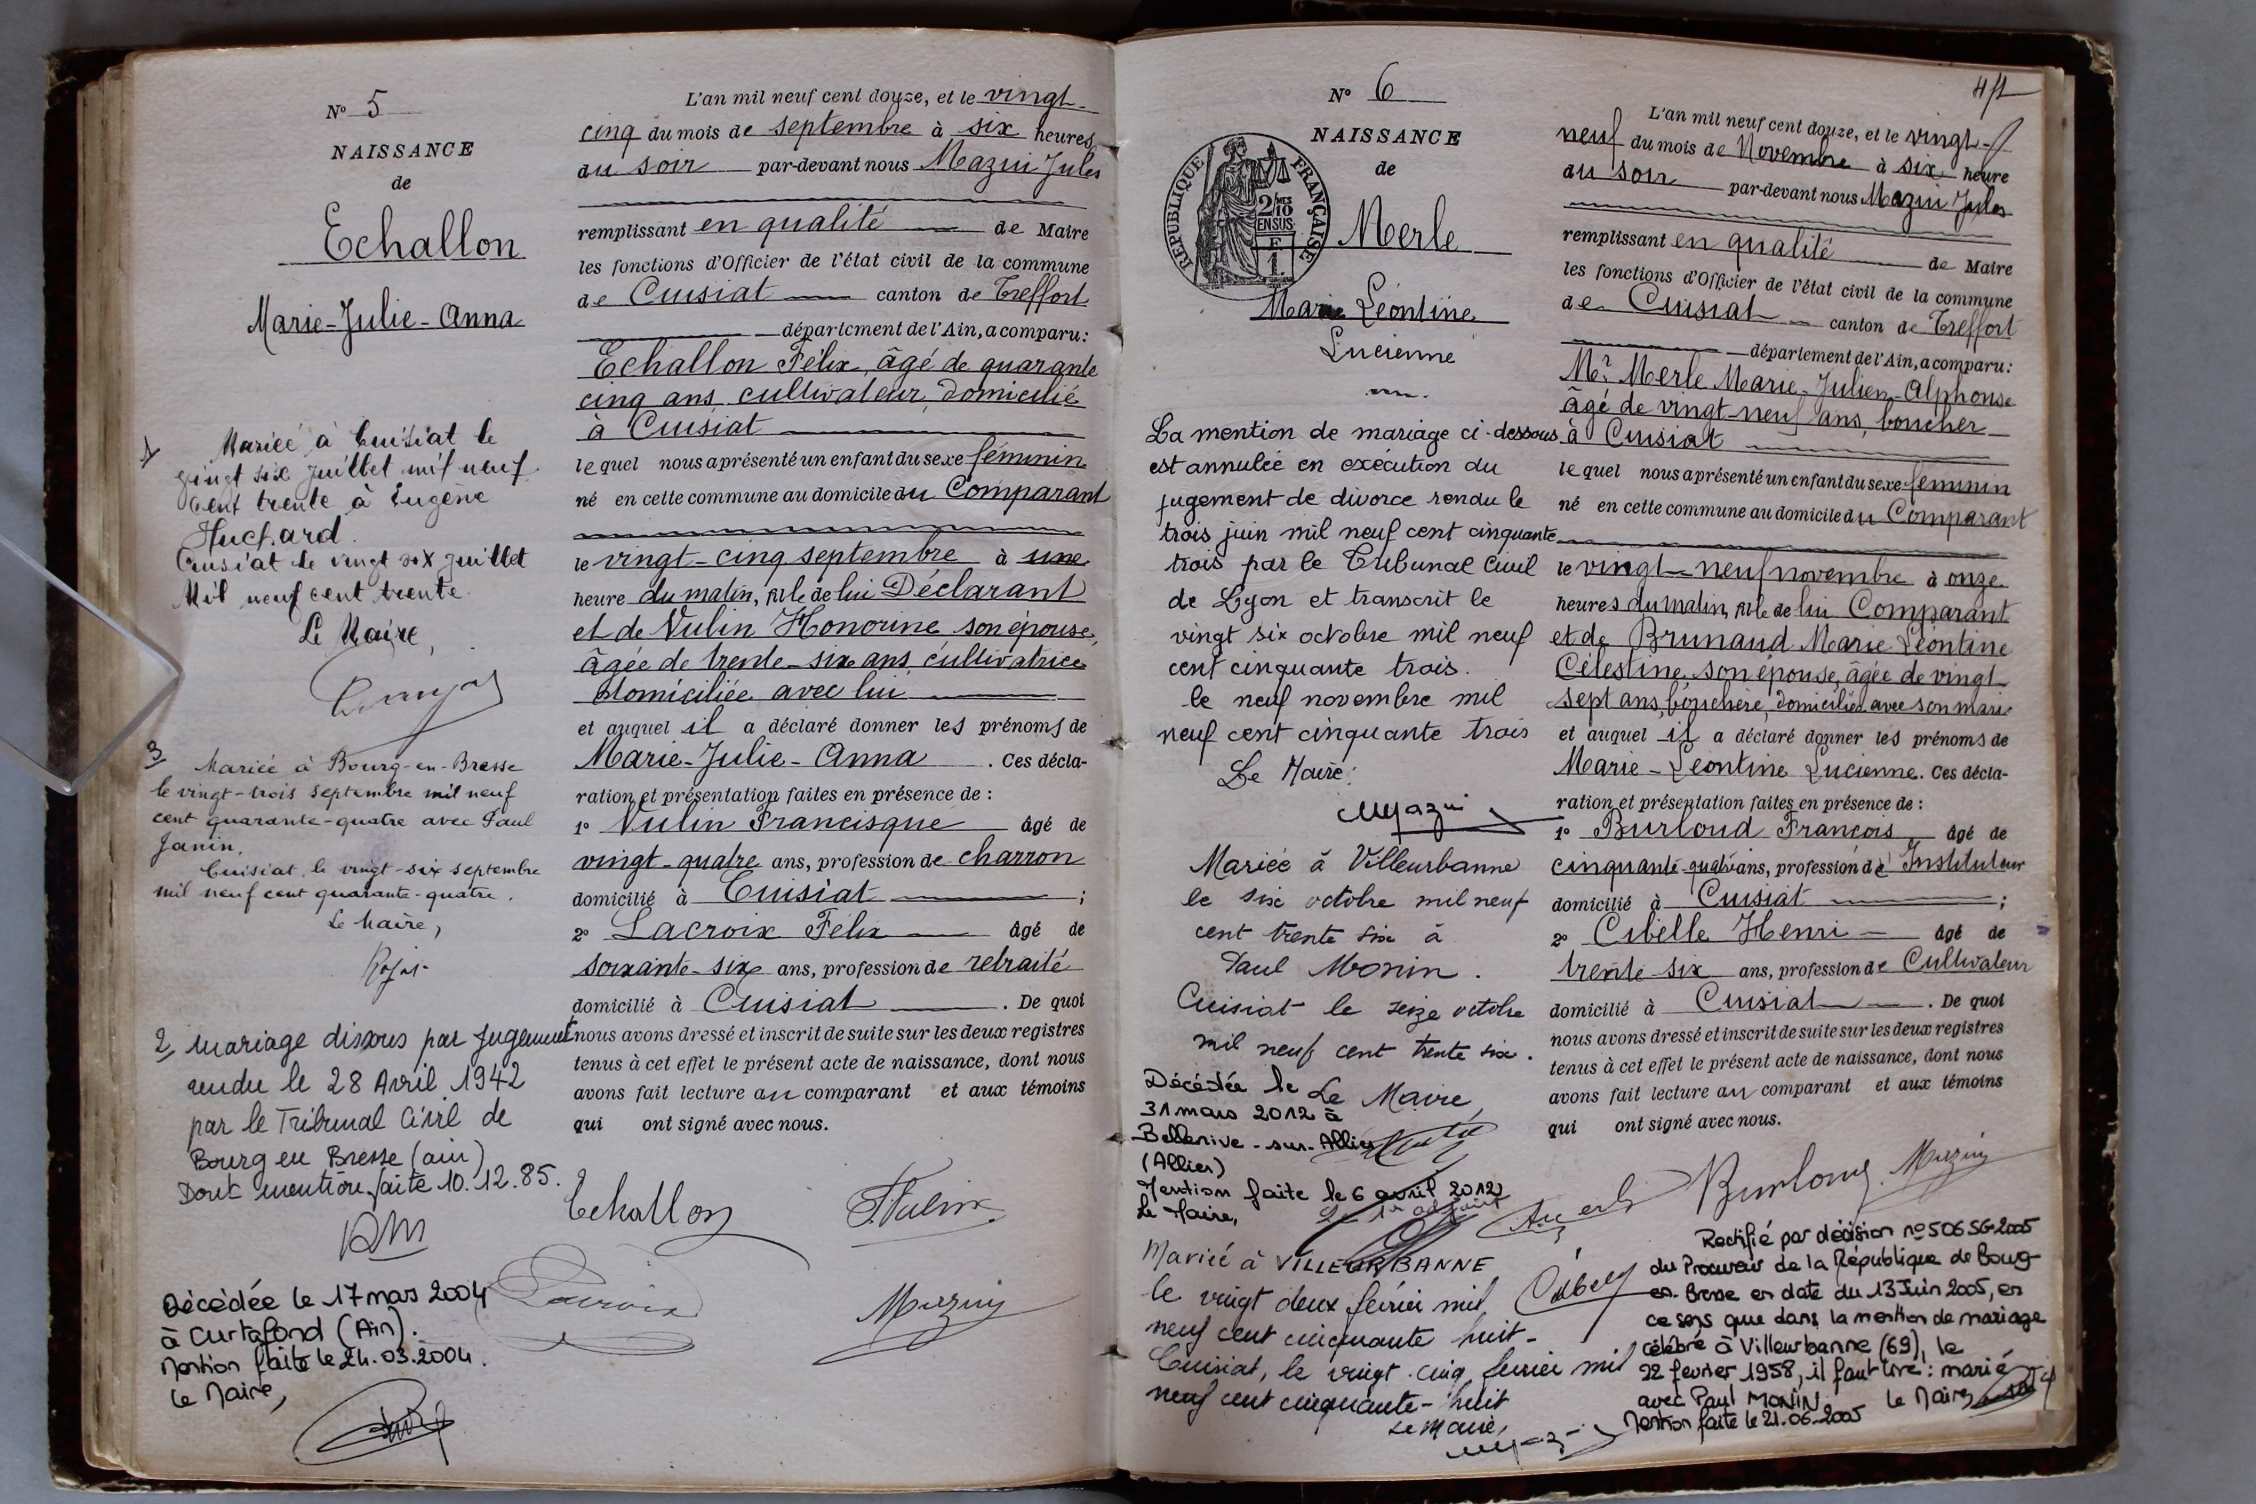 N° 5
NAISSANCE
de
Echallon
Marie-Julie-Anna
1
Mariée à Cuisiat le
vingt six juillet mil neuf
cent trente à Eugène
Huchard.
Cuisiat le vingt six juillet
Mil neuf cent trente.
Le Maire,
3
Mariée à Bourg-en-Bresse
le vingt-trois septembre mil neuf
cent quarante-quatre avec Paul
Janin.
Cuisiat, le vingt-six septembre
mil neuf cent quarante-quatre.
Le Maire,
2, Mariage dissous par Jugement
rendu le 28 Avril 1942
par le Tribunal Civil de
Bourg en Bresse (ain)
Dont mention faite 10.12.85.
Décédée le 17 mars 2004
à Curtafond (Ain).
Mention faite le 24.03.2004.
Le Maire,
L'an mil neuf cent douze, et le vingt-
cinq du mois de septembre à six heures
du soir par-devant nous Mazui Jules
remplissant en qualité de Maire
les fonctions d'Officier de l'état civil de la commune
de Cuisiat canton de Treffort
département de l'Ain, a comparu:
Echallon Félix, âgé de quarante
cinq ans, cultivateur, domicilié
à Cuisiat
lequel nous a présenté un enfant du sexe féminin
né en cette commune au domicile du Comparant
le vingt-cinq septembre à une
heure du matin, fille de lui Déclarant
et de Vulin Honorine son épouse,
âgée de trente-six ans cultivatrice
domiciliée avec lui
et auquel il a déclaré donner les prénoms de
Marie-Julie-Anna. Ces décla-
ration et présentation faites en présence de :
1° Vulin Francisque âgé de
vingt-quatre ans, profession de charron
domicilié à Cuisiat ;
2° Lacroix Félix âgé de
soixante-six ans, profession de retraité
domicilié à Cuisiat. De quoi
nous avons dressé et inscrit de suite sur les deux registres
tenus à cet effet le présent acte de naissance, dont nous
avons fait lecture au comparant et aux témoins
qui ont signé avec nous.
Echallon F. Vulin
Lacroix Mazuy
4/1
N° 6
NAISSANCE
de
RÉPUBLIQUE FRANÇAISE
2/10 MES
EN SUS
F
1.
Merle
Marie Léontine
Lucienne
La mention de mariage ci-dessous
est annulée en exécution du
jugement de divorce rendu le
trois juin mil neuf cent cinquante
trois par le Tribunal Civil
de Lyon et transcrit le
vingt six octobre mil neuf
cent cinquante trois.
le neuf novembre mil
neuf cent cinquante trois
Le Maire:
Mariée à Villeurbanne
le six octobre mil neuf
cent trente six à
Paul Monin.
Cuisiat le seize octobre
mil neuf cent trente six.
Le Maire,
Décédée le
31 mars 2012 à
Bellerive-sur-Allier
(Allier)
Mention faite le 6 avril 2012
Le Maire,
Le 1er adjoint
Mariée à VILLEURBANNE
le vingt deux février mil
neuf cent cinquante huit-
Cuisiat, le vingt-cinq février mil
neuf cent cinquante-huit
Le Maire,
L'an mil neuf cent douze, et le vingt-
neuf du mois de Novembre à six heure
du soir par-devant nous Mazui Jules
remplissant en qualité de Maire
les fonctions d'Officier de l'état civil de la commune
de Cuisiat canton de Treffort
département de l'Ain, a comparu:
Mr Merle Marie-Julien-Alphonse
âgé de vingt-neuf ans, boucher
à Cuisiat
lequel nous a présenté un enfant du sexe féminin
né en cette commune au domicile du Comparant
le vingt-neuf novembre à onze
heures du matin, fille de lui Comparant
et de Brunaud Marie Léontine
Célestine, son épouse, âgée de vingt
sept ans, bouchère, domiciliée avec son mari
et auquel il a déclaré donner les prénoms de
Marie-Léontine Lucienne. Ces décla-
ration et présentation faites en présence de :
1° Burloud François, âgé de
cinquante-quatre ans, profession de Instituteur
domicilié à Cuisiat ;
2° Cibelle Henri âgé de
trente-six ans, profession de Cultivateur
domicilié à Cuisiat. De quoi
nous avons dressé et inscrit de suite sur les deux registres
tenus à cet effet le présent acte de naissance, dont nous
avons fait lecture au comparant et aux témoins
qui ont signé avec nous.
Burloud Mazuy
Rectifié par décision n° 506 SG 2005
du Procureur de la République de Bourg-
en-Bresse en date du 13 Juin 2005, en
ce sens que dans la mention de mariage
célébré à Villeurbanne (69), le
22 février 1958, il faut lire : marié
avec Paul MONIN. Le Maire
Mention faite le 21.06.2005